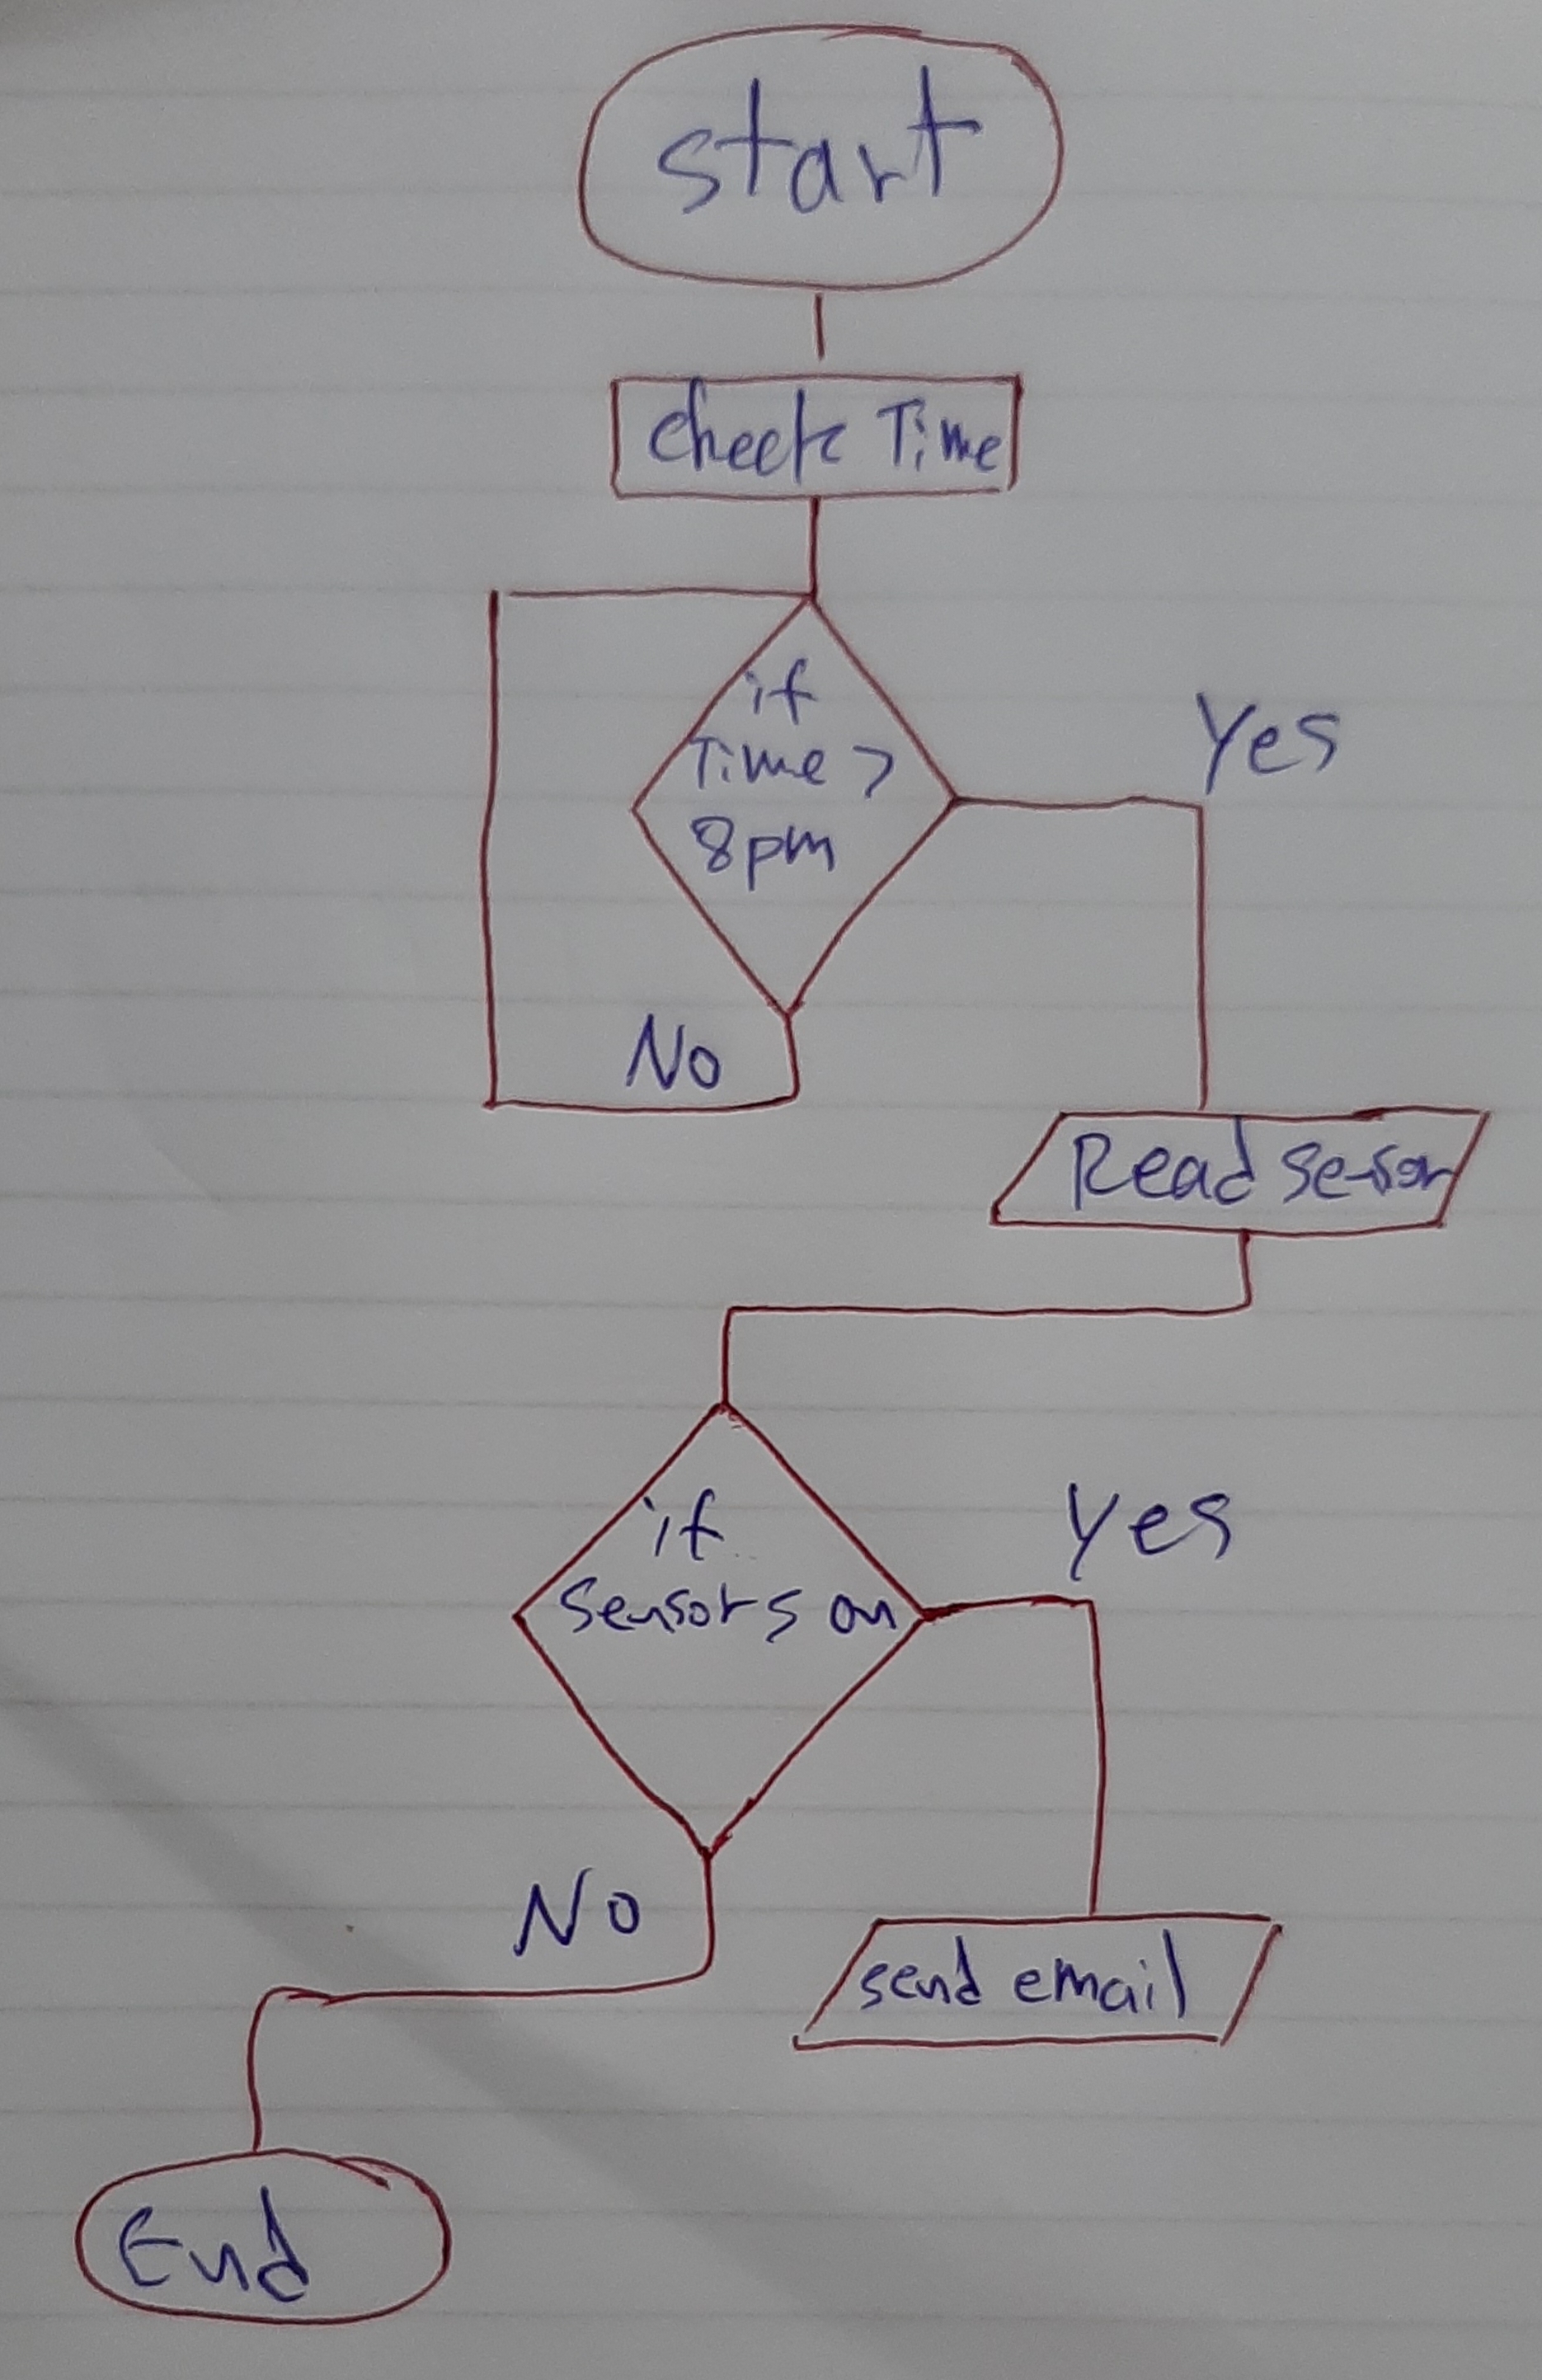 start
check Time
if
Time >
8pm
Yes
No
Read Sensor
if
Sensors on
Yes
No
send email
End